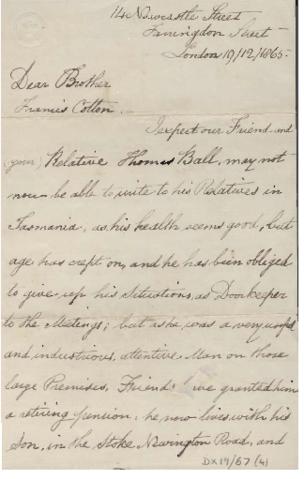 14 Newcastle Street
Farringdon Street
London 19/12/1865.
Dear Brother
Francis Cotton.
I expect our Friend and
(your) Relative Thomas Ball, may not
now be able to write to his Relatives in
Tasmania, as his health seems good, but
age has crept on, and he has been obliged
to give up his Situation, as Doorkeeper
to the Meetings; but as he was a very useful
and industrious, attentive Man on those
large Premises, Friends have granted him
a retiring pension: he now lives with his
Son, in the Stoke Newington Road, and
DX19/67 (4)